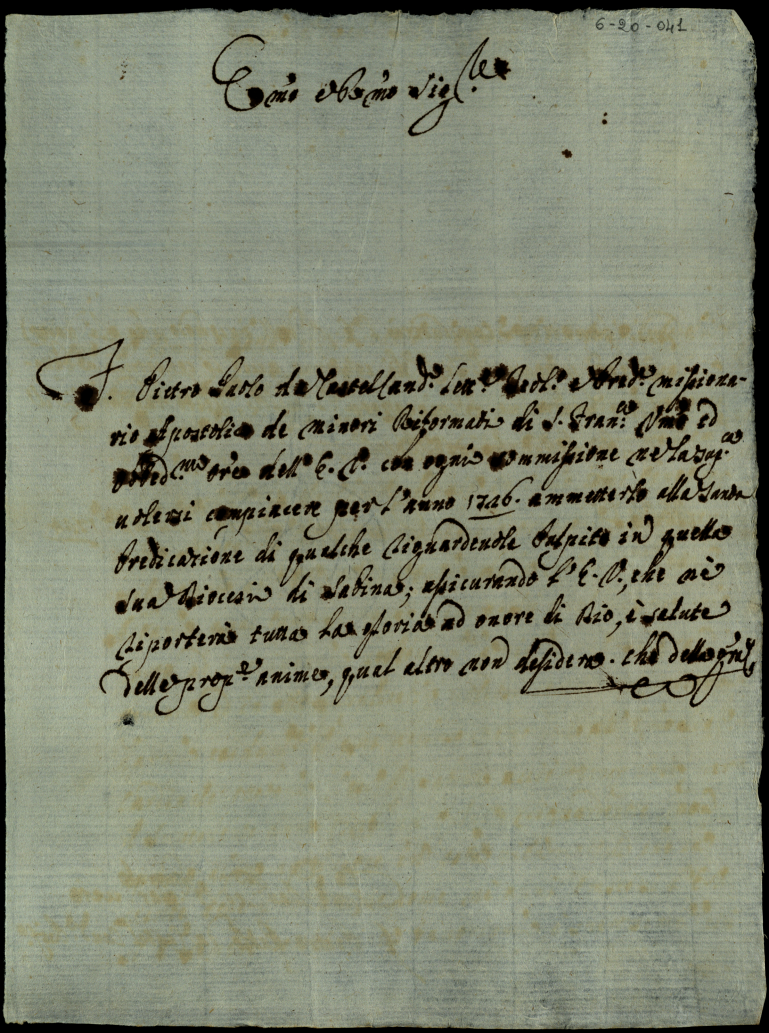 6-20-041
Emo e Rmo Sig.re
F. Pietro Paolo da Castelland.o Lett.e Teol.o e Pred.e missiona-
rio Apostolico de minori Riformati di S. Fran.co Um.o ed
obbed.mo Ore dell' E. V. con ogni commissione ne la sup.ca
volersi compiacere per l'anno 1726. ammetterlo alla Santa
Predicazione di qualche riguardevole Pulpito in quella
sua Diocesi di Sabina; assicurando l' E. V., che ne
riporterà tutta la gloria ad onore di Dio, e salute
delle prop.e anime, qual altro non desidera. che della gra